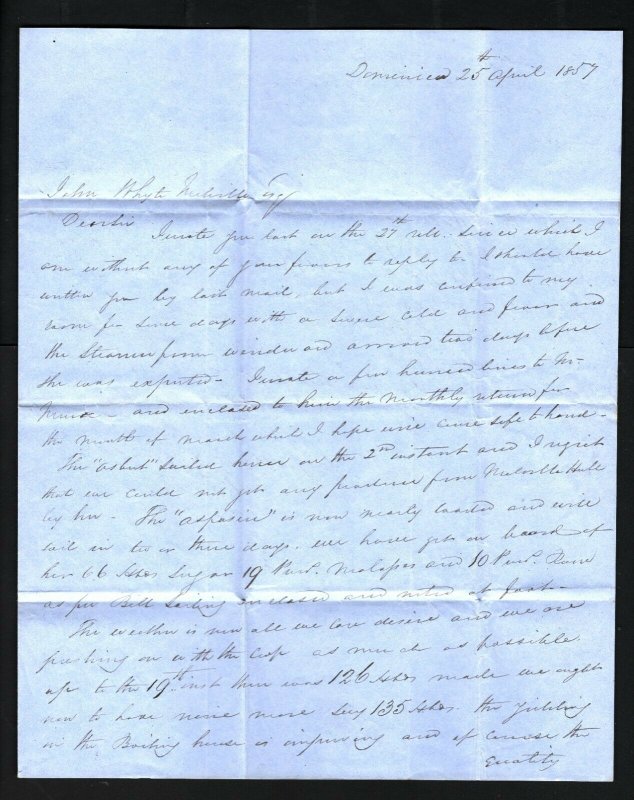 Dominica 25th April 1857
John Whyte Melville Esq
Dear Sir I wrote you last on the 27th ult. since which I
am without any of your favors to reply to. I should have
written you by last mail, but I was confined to my
room for some days with a severe cold and fever and
the Steamer from windward arrived two days before
she was expected - I wrote a few hurried lines to Mr
and enclosed to him the monthly return for
the month of March which I hope will come safe to hand -
The "Osbert" Sailed hence on the 2nd instant and I regret
that we could not get any produce from Melville Hall
by her - The "Aspasia" is now nearly loaded and will
sail in two or three days. We have got on board of
her 66 Hhds Sugar 19 Pun. Molasses and 10 Pun. Rum
as per Bill Lading enclosed and noted at foot -
The weather is now all we can desire and we are
pushing on with the Crop as much as possible
up to the 19th inst there was 126 Hhds made we ought
now to have some more say 135 Hhds. the yielding
in the Boiling house is improving and of course the
Quality